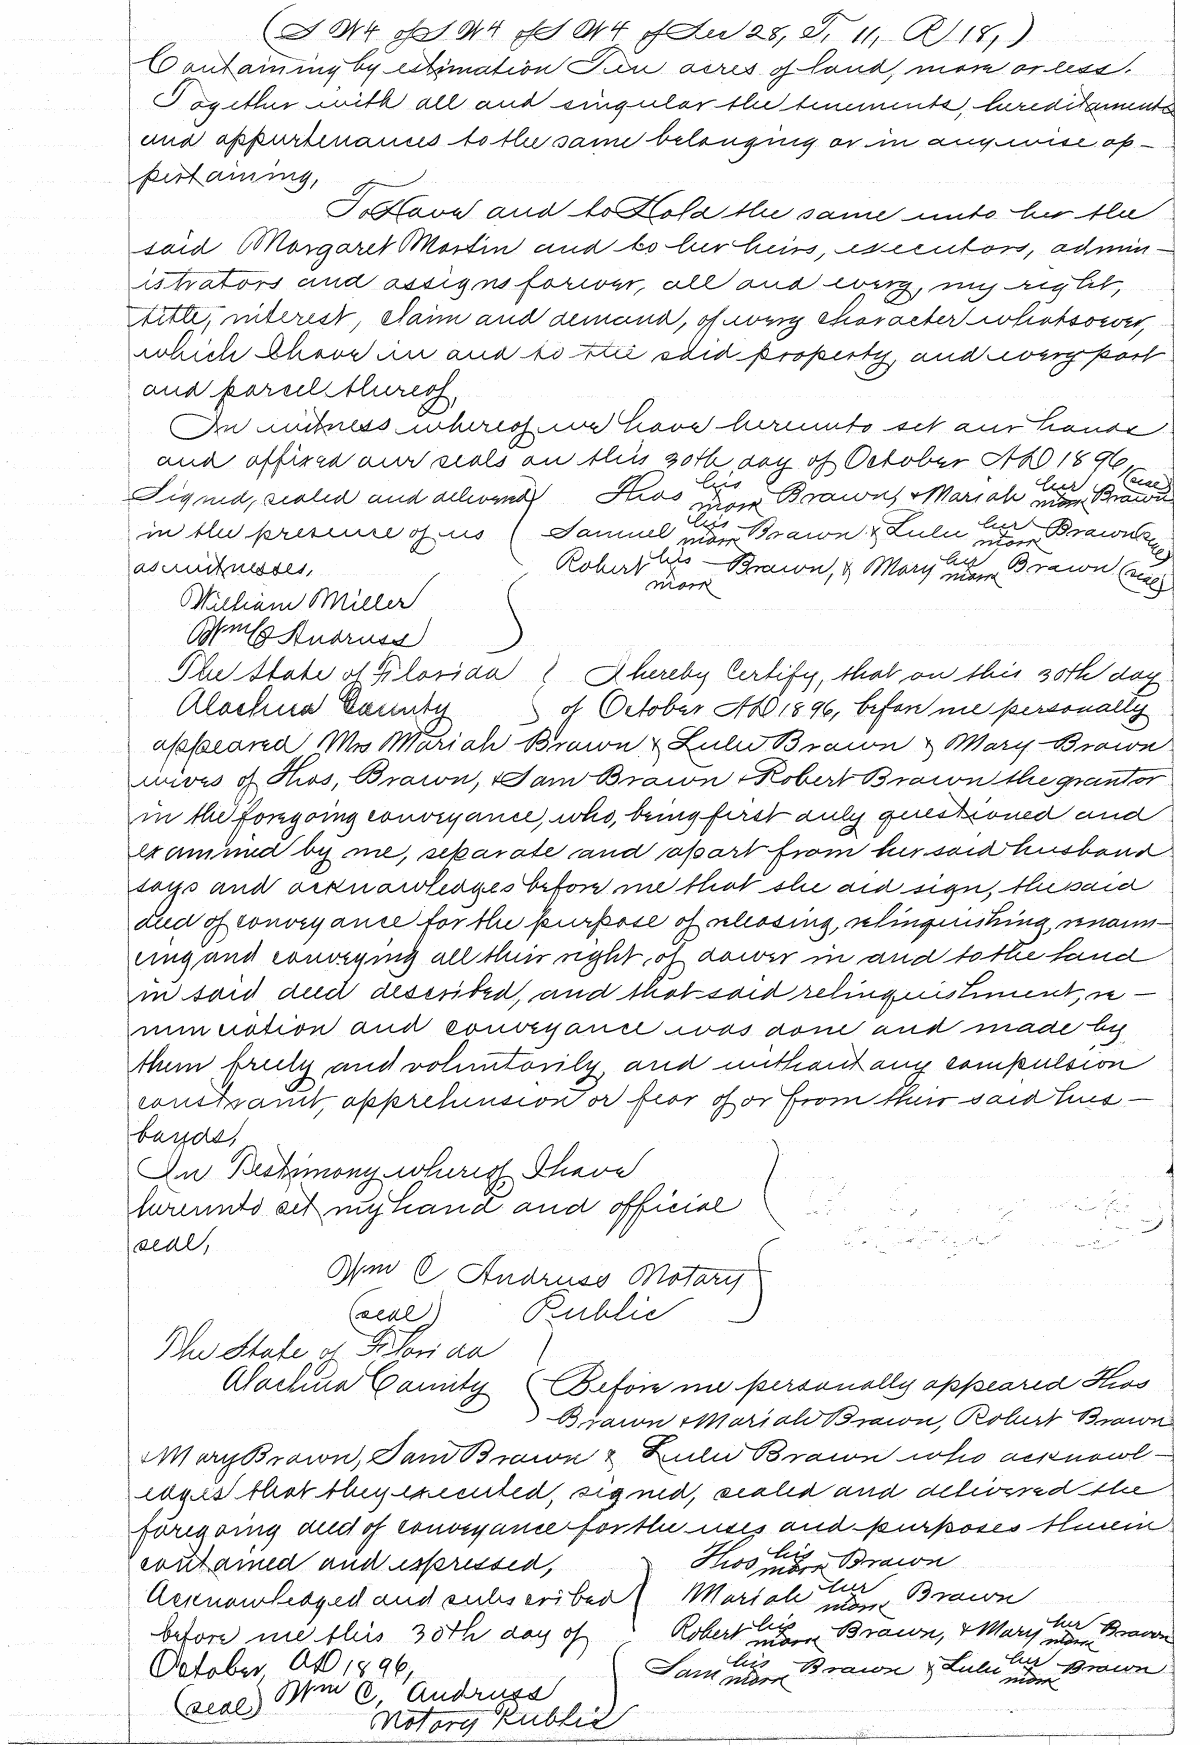 (S W4 of S W4 of S W4 of Sec 28, T, 11, R 18,)
Containing by estimation Ten acres of land, more or less.
Together with all and singular the tenements, hereditaments
and appurtenances to the same belonging or in any wise ap-
pertaining,
To Have and to Hold the same unto her the
said Margaret Martin and to her heirs, executors, admin-
istrators and assigns forever, all and every, my right,
title, interest, claim and demand, of every character whatsoever,
which I have in and to the said property, and every part
and parcel thereof,
In witness whereof we have hereunto set our hands
and affixed our seals on this 30th day of October AD 1896,
Signed, sealed and delivered Thos his mark Brown, & Mariah her mark Brown (seal)
in the presence of us Samuel his mark Brown & Lulu her mark Brown (seal)
as witnesses, Robert his mark Brown, & Mary her mark Brown (seal)
William Miller
Wm C Andruss
The State of Florida I hereby Certify, that on this 30th day
Alachua County of October AD 1896, before me personally
appeared Mrs Mariah Brown & Lulu Brown & Mary Brown
wives of Thos, Brown, & Sam Brown & Robert Brown the grantor
in the foregoing conveyance, who, being first duly questioned and
examined by me, separate and apart from her said husband
says and acknowledges before me that she did sign, the said
deed of conveyance for the purpose of releasing, relinquishing, renoun-
cing and conveying all their right, of dower in and to the land
in said deed described, and that said relinquishment, re-
nunciation and conveyance was done and made by
them freely and voluntarily, and without any compulsion
constraint, apprehension or fear of or from their said hus-
bands,
In Testimony whereof I have
hereunto set my hand and official
seal,
Wm C Andruss Notary
(seal) Public
The State of Florida
Alachua County Before me personally appeared Thos
Brown & Mariah Brown, Robert Brown
& Mary Brown, Sam Brown & Lulu Brown who acknowl-
edges that they executed, signed, sealed and delivered the
foregoing deed of conveyance for the uses and purposes therein
contained and expressed, Thos his mark Brown
Acknowledged and subscribed Mariah her mark Brown
before me this 30th day of Robert his mark Brown, & Mary her mark Brown
October, AD 1896, Sam his mark Brown & Lulu her mark Brown
(seal) Wm C, Andruss
Notary Public